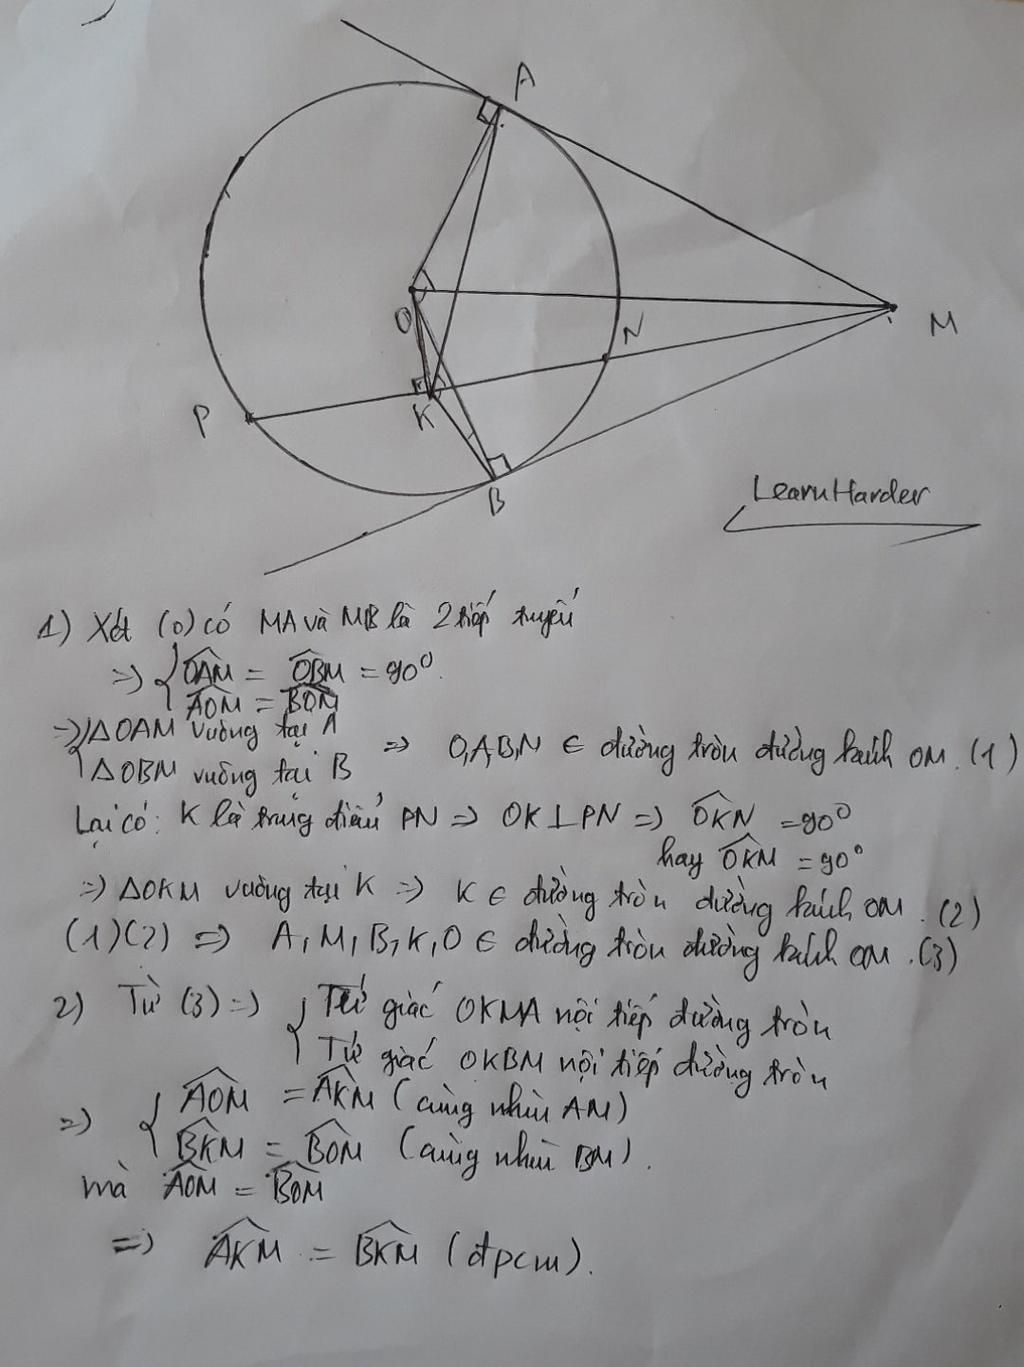 A
O
N
M
P
K
B
LearnHarder
1) Xét (O) có MA và MB là 2 tiếp tuyến
=> { \widehat{OAM} = \widehat{OBM} = 90°.
\widehat{AOM} = \widehat{BOM}
=> { ΔOAM vuông tại A
ΔOBM vuông tại B => O,A,B,M ∈ đường tròn đường kính OM. (1)
Lại có: K là trung điểm PN => OK⊥PN => \widehat{OKN} = 90°
hay \widehat{OKM} = 90°
=> ΔOKM vuông tại K => K ∈ đường tròn đường kính OM. (2)
(1)(2) => A, M, B, K, O ∈ đường tròn đường kính OM. (3)
2) Từ (3) => { Tứ giác OKMA nội tiếp đường tròn
Tứ giác OKBM nội tiếp đường tròn
=> { \widehat{AOM} = \widehat{AKM} (cùng nhìn AM)
\widehat{BKM} = \widehat{BOM} (cùng nhìn BM).
mà \widehat{AOM} = \widehat{BOM}
=> \widehat{AKM} = \widehat{BKM} (đpcm).